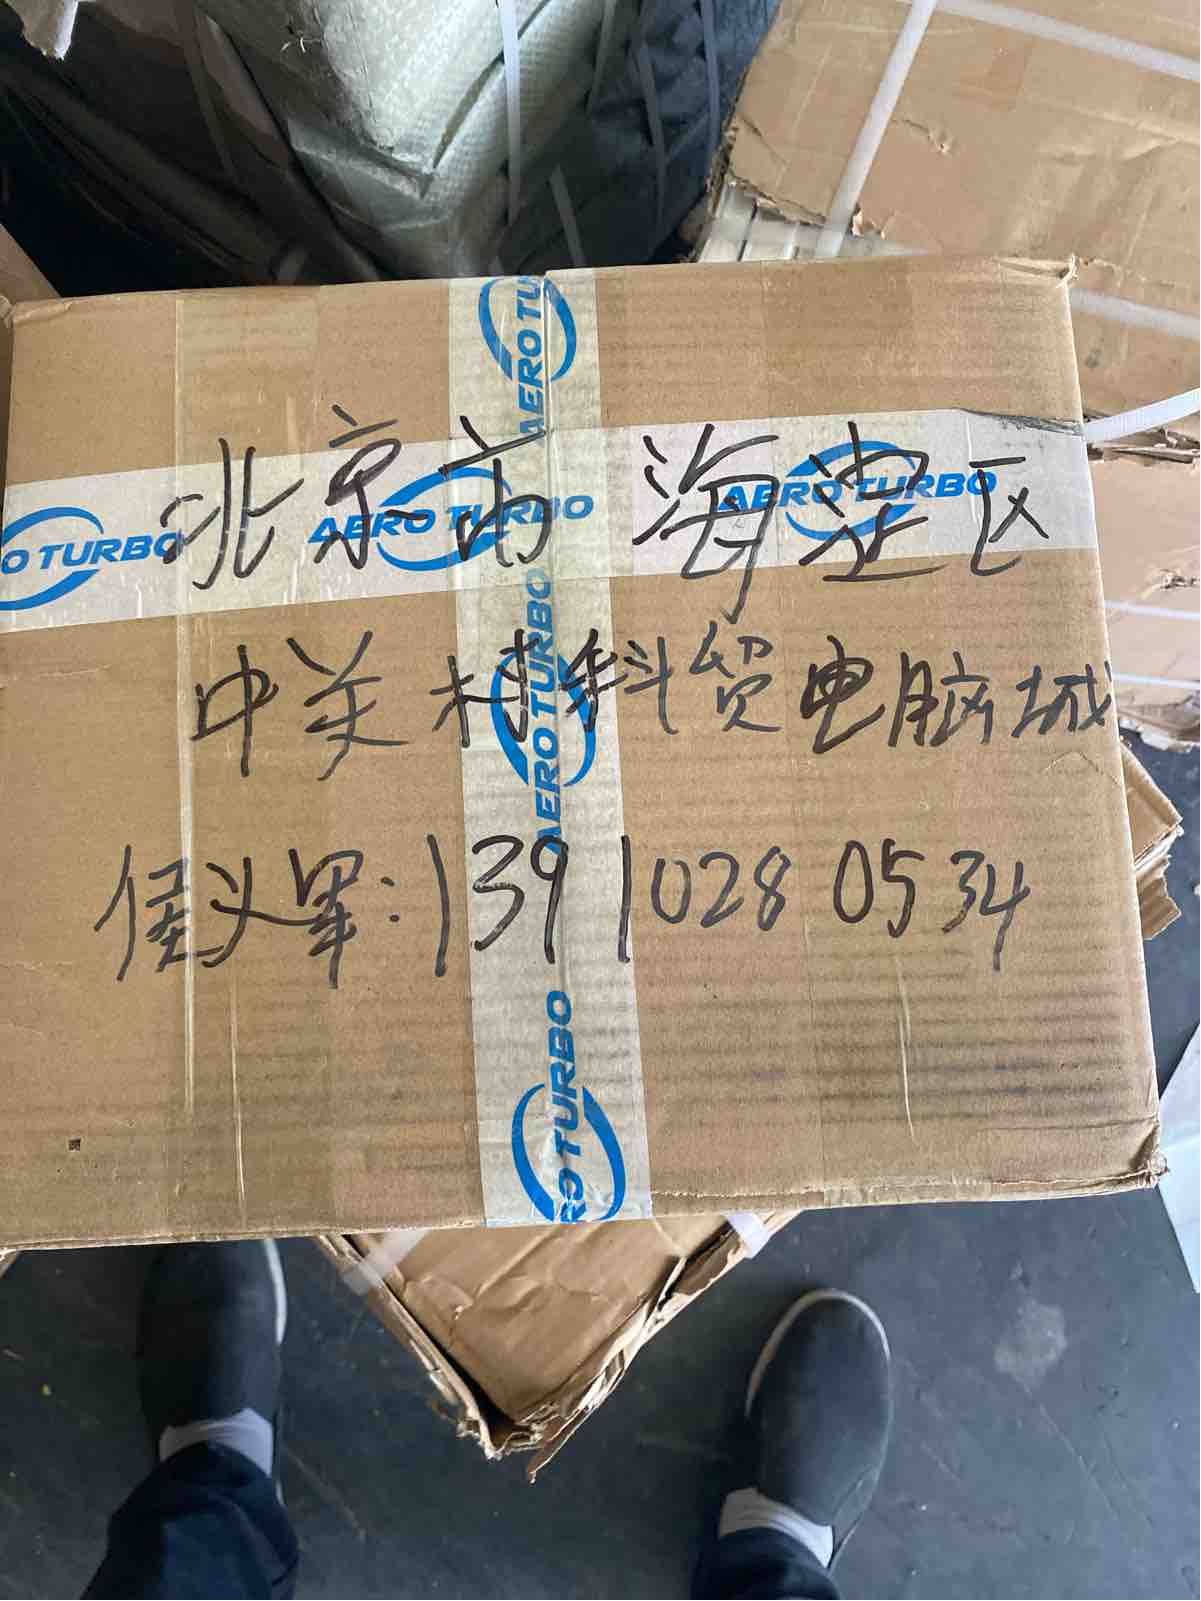 AERO TURBO
北京市 海淀区
O TURBO AERO TURBO AERO TURBO
中关村科贸电脑城
AERO TURBO
:139 1028 0534
RO TURBO